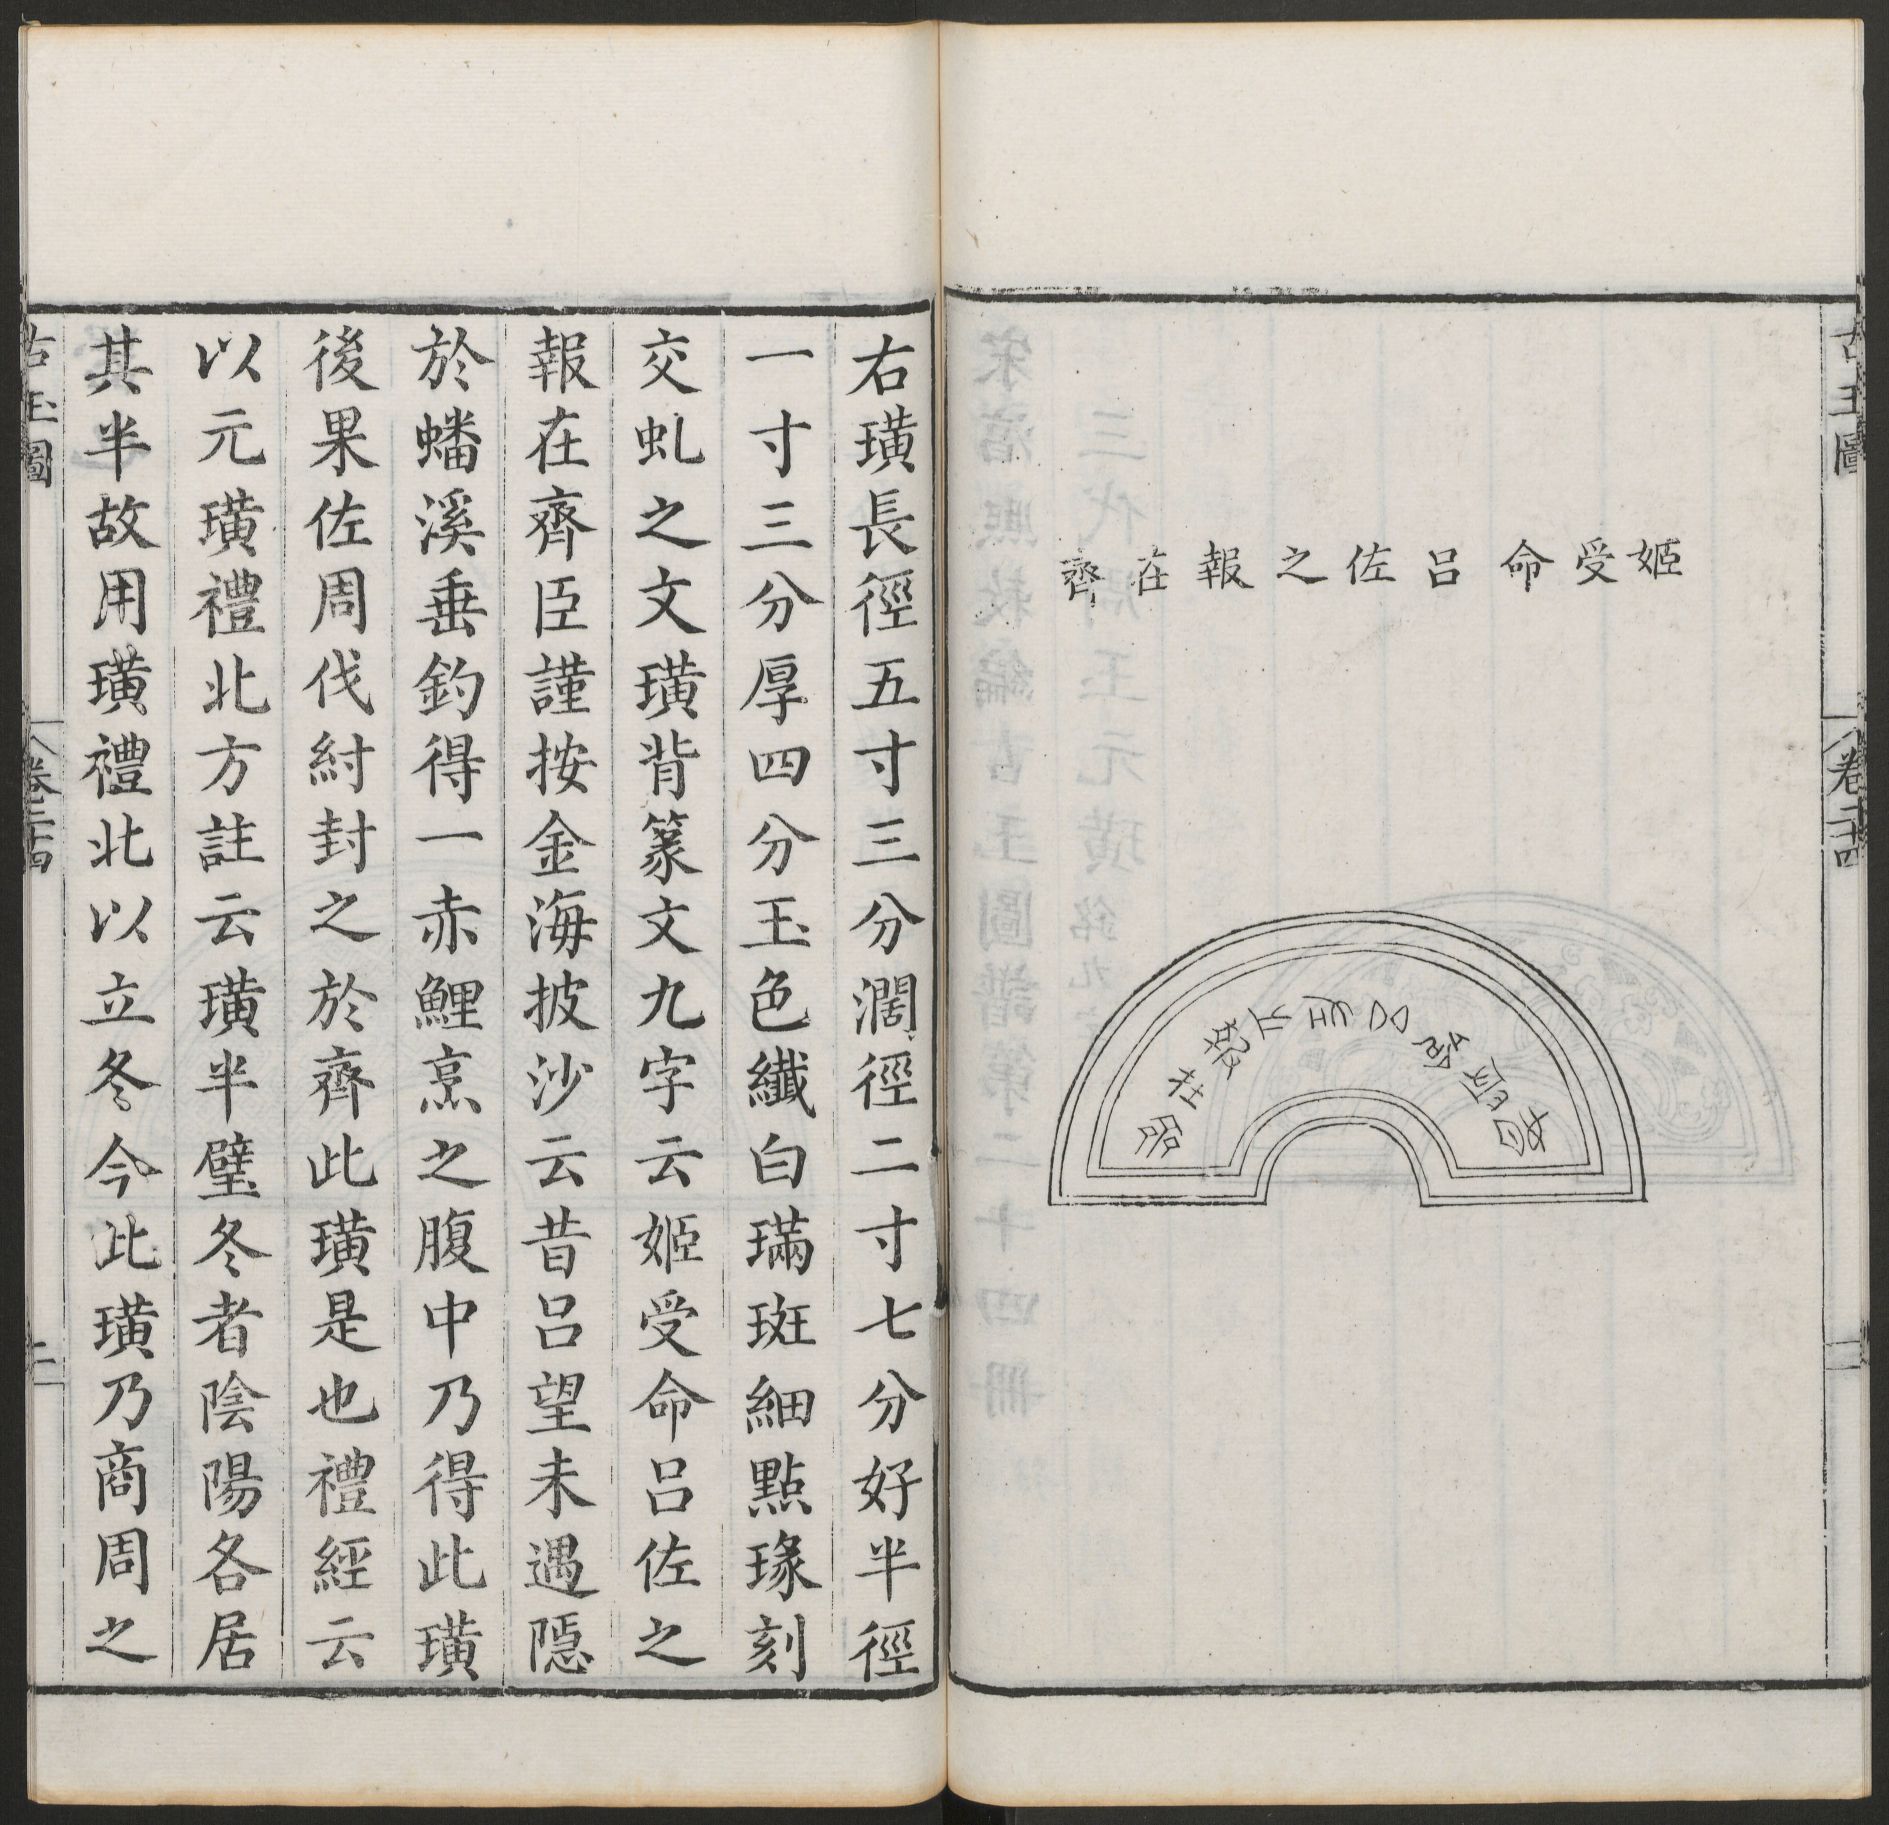 古玉圖
卷二十四
姬受命呂佐之報在齊
右璜長徑五寸三分濶徑二寸七分好半徑
一寸三分厚四分玉色纖白璊斑細點瑑刻
交虬之文璜背篆文九字云姬受命呂佐之
報在齊臣謹按金海披沙云昔呂望未遇隱
於蟠溪垂釣得一赤鯉烹之腹中乃得此璜
後果佐周伐紂封之於齊此璜是也禮經云
以元璜禮北方註云璜半璧冬者陰陽各居
其半故用璜禮北以立冬今此璜乃商周之
古玉圖
卷二十四
二